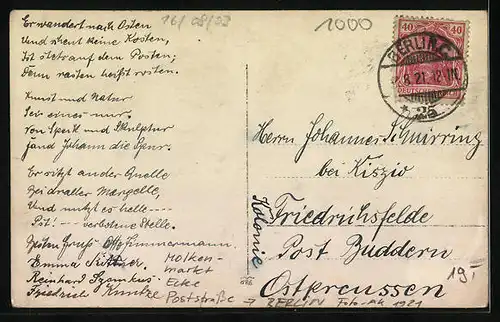 16/08/03
1000
Er wandert nach Osten
Und scheut keine Kosten,
Ist stets auf dem Posten;
Denn rasten heißt rosten.
Kunst und Natur
Sei eines nur.
Von Speck und Skulptur
fand Johann die Spur.
Er sitzt an der Quelle
Bei draller Margelle,
Und nutzt es helle ---
Pst! --- verbotene Stelle.
Besten Gruß Otto Zimmermann.
Emma
Reinhard
Friedrich Kuntze
Molken-
markt
Ecke
Poststraße → BERLIN Foto-AK 1921
40 40
DEUTSCHES REICH
BERLIN C.
8.21. 12
* 25
Herrn Johannes Schmirring
bei Kiszio
Kolonie
Friedrichsfelde
Post Buddern
Ostpreussen
19.-